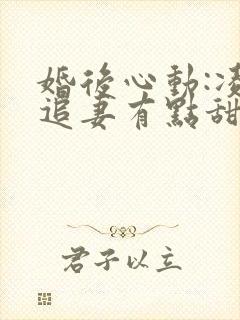 婚後心動:凌
追妻有點甜
君子以立